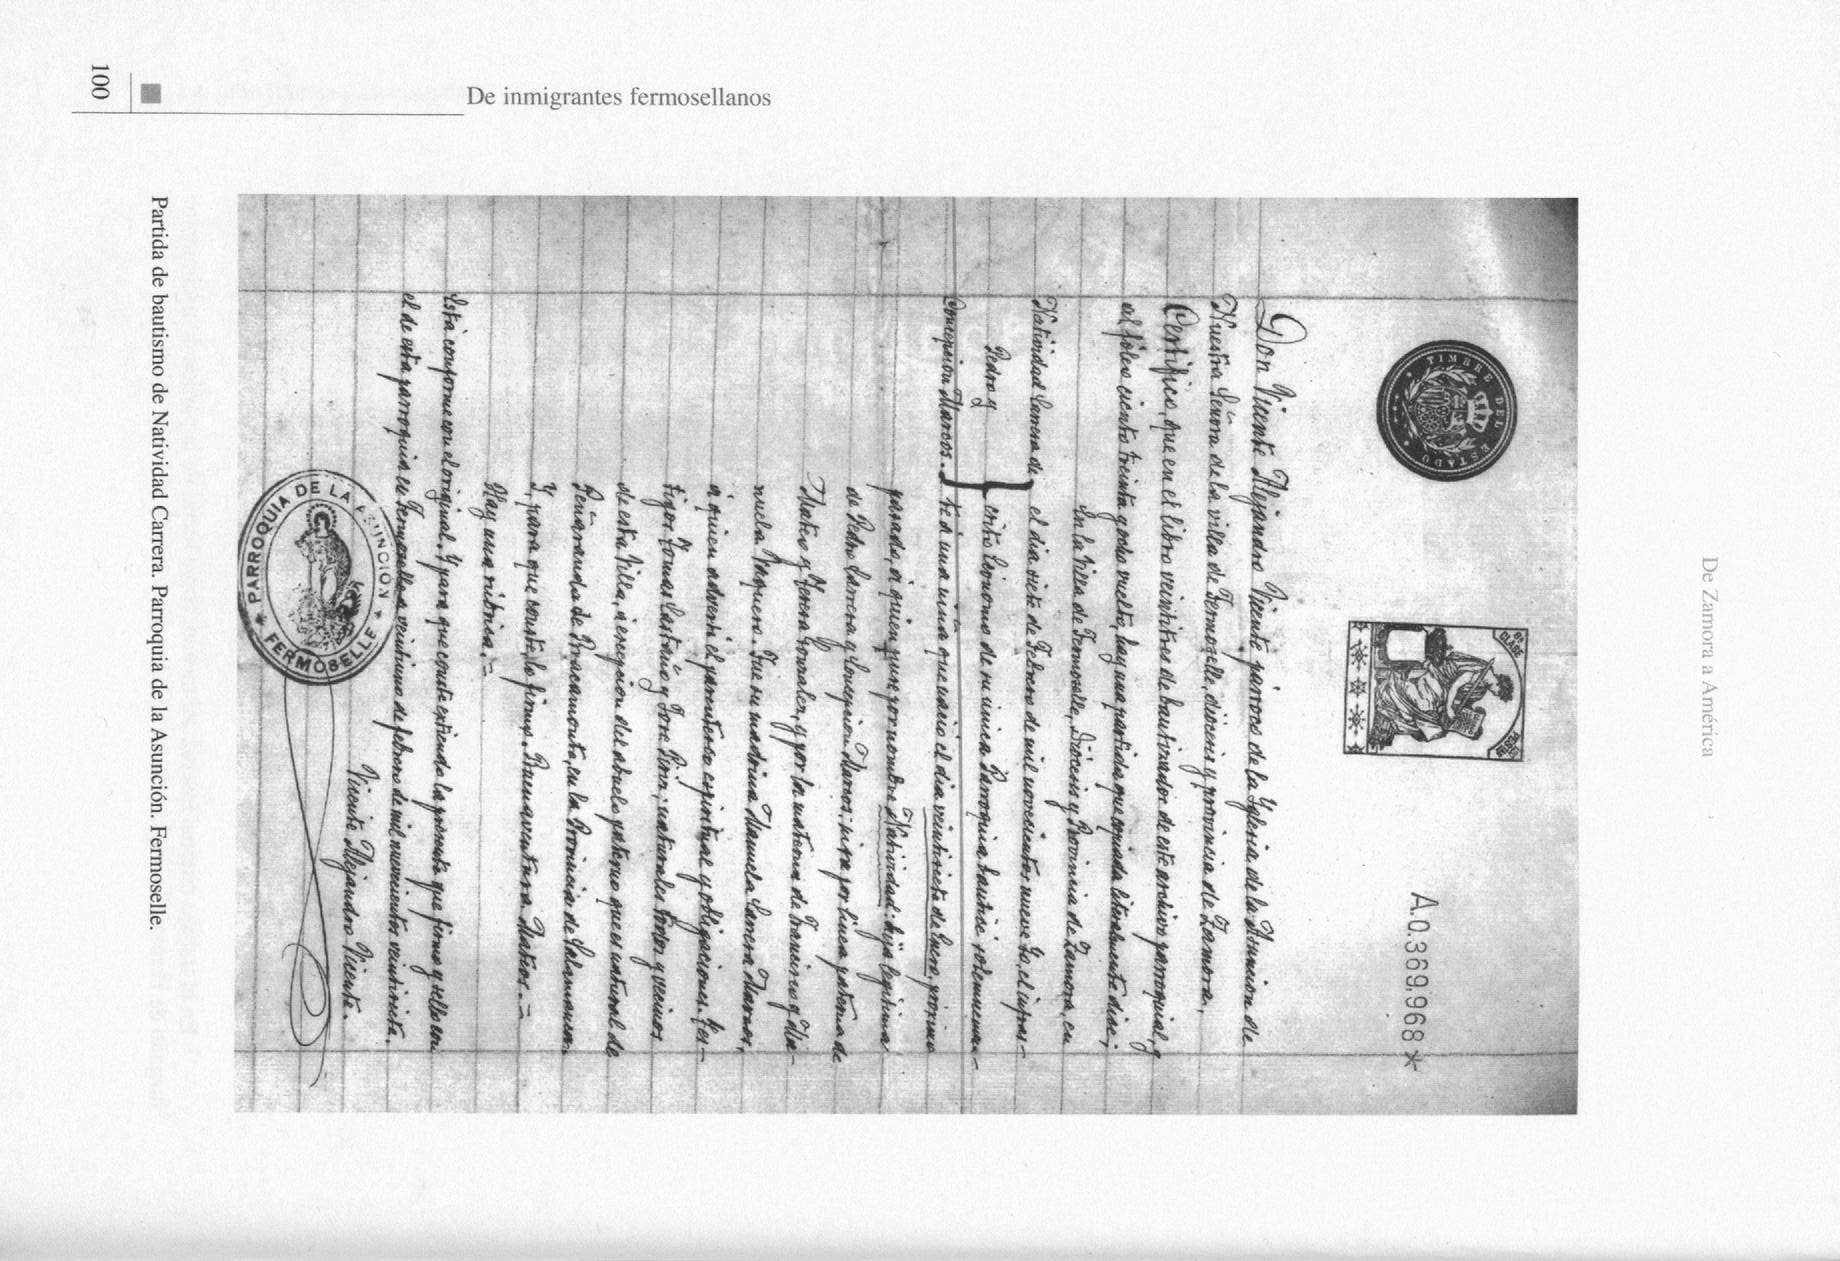 De Zamora a América
TIMBRE DEL ESTADO
8ª CLASE
A0.369.968*
Don Vicente Alejandro Vicente párroco de la Yglesia de la Asunción de
Nuestra Señora de la villa de Fermoselle, diócesis y provincia de Zamora.
Certifico, que en el libro veintitres de bautizados de este archivo parroquial, y
al fólio ciento treinta y ocho vuelto, hay una partida que copiada literalmente dice;
En la Villa de Fermoselle, Diócesis y Provincia de Zamora, en
Natividad Carrera de
Pedro y
Concepción Marcos.
el dia siete de Febrero de mil novecientos nueve Yo, el infras-
crito Ecónomo de su única Parroquia bauticé solemnemen-
te á una niña que nació el dia veintisiete de Enero, próximo
pasado, á quien puse por nombre Natividad: hija legítima
de Pedro Carrera y Concepción Marcos; nieta por linea paterna de
Mateo y Teresa Gonzalez, y por la materna de Francisco y Ma-
nuela Vaquero. Fue su madrina Manuela Carrera Marcos,
á quien advertí el parentesco espiritual y obligaciones. Tes-
tigos Tomas Castaño y Jose Piriz; naturales todos y vecinos
de esta Villa, á escepcion del abuelo paterno que es natural de
Peñaranda de Bracamonte, en la Provincia de Salamanca.
Y, para que conste lo firmo. Buenaventura Mateos.=
Hay una rúbrica.=
Está conforme con el original. Y para que conste extiendo la presente que firmo y sello con
el de esta parroquia en Fermoselle a veintiuno de febrero de mil novecientos veintisiete.
Vicente Alejandro Vicente.
PARROQUIA DE LA ASUNCION
FERMOSELLE
Partida de bautismo de Natividad Carrera. Parroquia de la Asunción. Fermoselle.
De inmigrantes fermosellanos
100